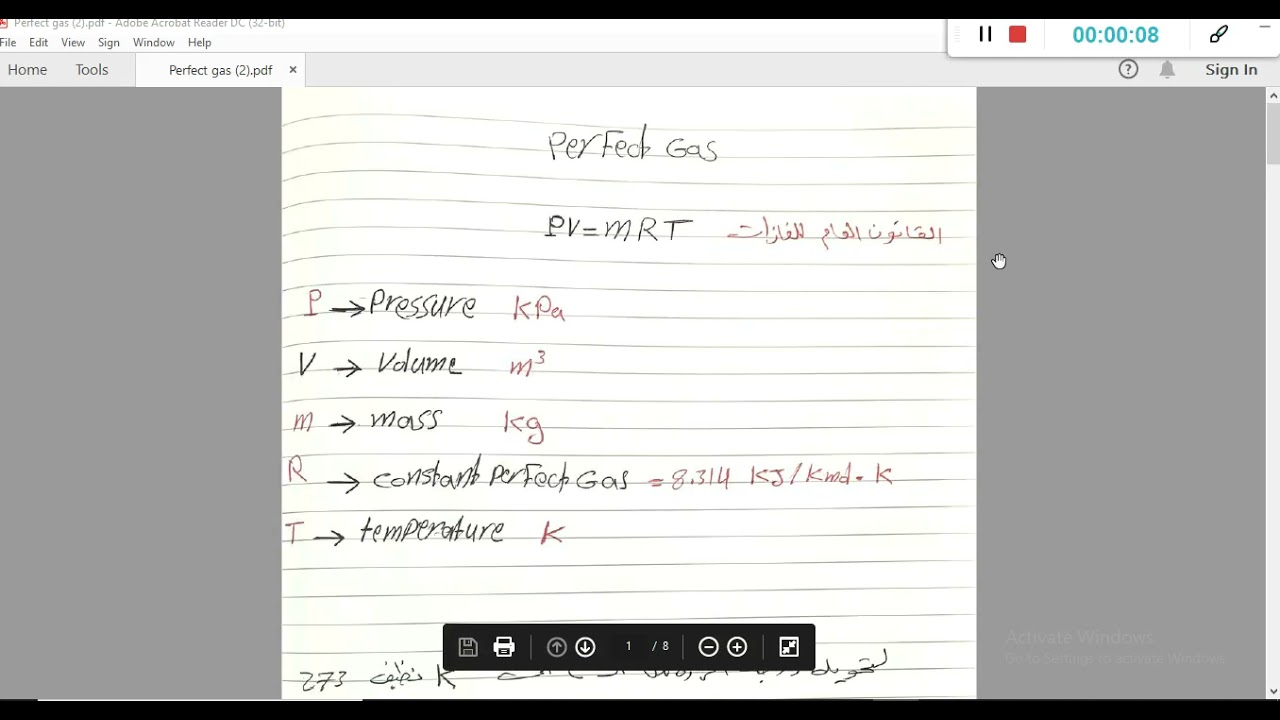 Perfect gas (2).pdf - Adobe Acrobat Reader DC (32-bit)
File Edit View Sign Window Help
00:00:08
Home Tools Perfect gas (2).pdf × Sign In
Perfect Gas
PV=mRT القانون العام للغازات
P → Pressure kPa
V → Volume m³
m → mass kg
R → constant Perfect Gas = 8.314 KJ/Kmol. K
T → temperature K
1 / 8
K نضيف 273
Activate Windows
Go to Settings to activate Windows.